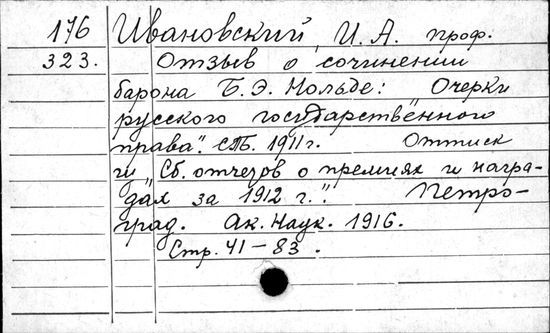 176 Ивановский, И. А. проф.
323. Отзыв о сочинении
барона Б. Э. Нольде: Очерки
русского государственного
права". СПБ. 1911 г. Оттиск
из "Сб. отчетов о премиях и награ-
дах за 1912 г.". Петро-
град. Ак. Наук. 1916.
Стр. 41 – 83.